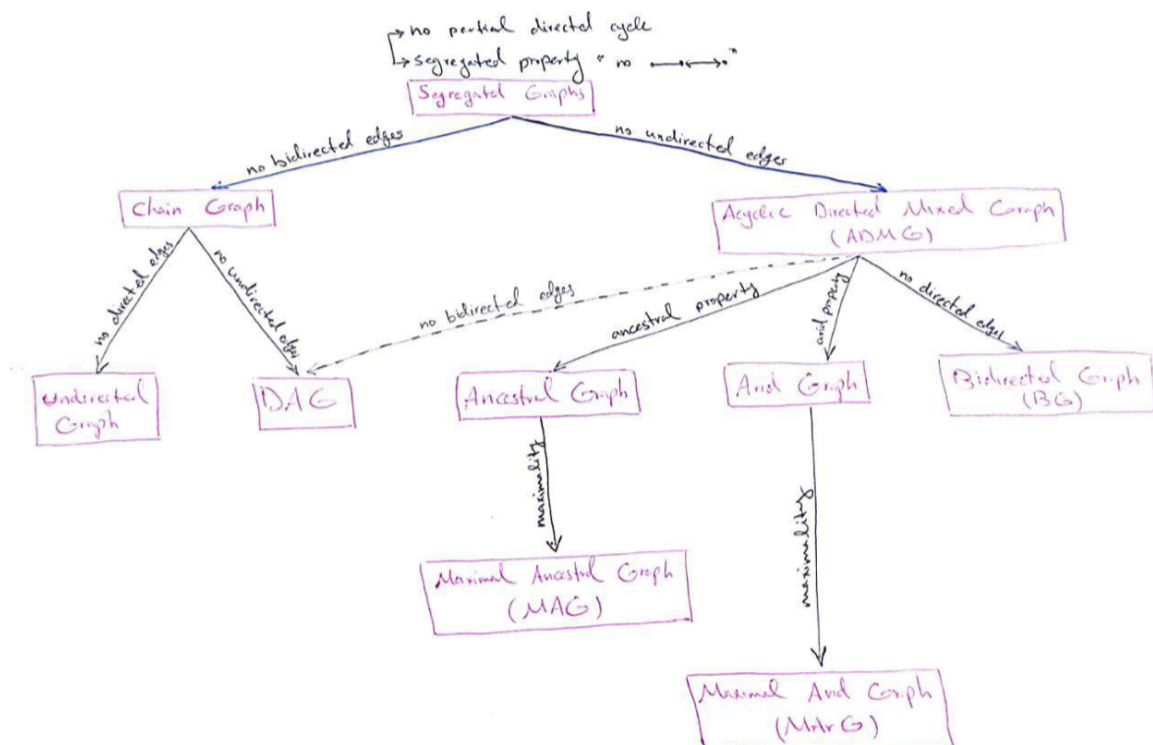 no partial directed cycle
segregated property " no "
Segregated Graphs
no bidirected edges
no undirected edges
Chain Graph
Acyclic Directed Mixed Graph
(ADMG)
no directed edges
no undirected edges
no bidirected edges
ancestral property
arid property
no directed edges
Undirected
Graph
DAG
Ancestral Graph
Arid Graph
Bidirected Graph
(BG)
maximality
maximality
Maximal Ancestral Graph
(MAG)
Maximal Arid Graph
(MArG)